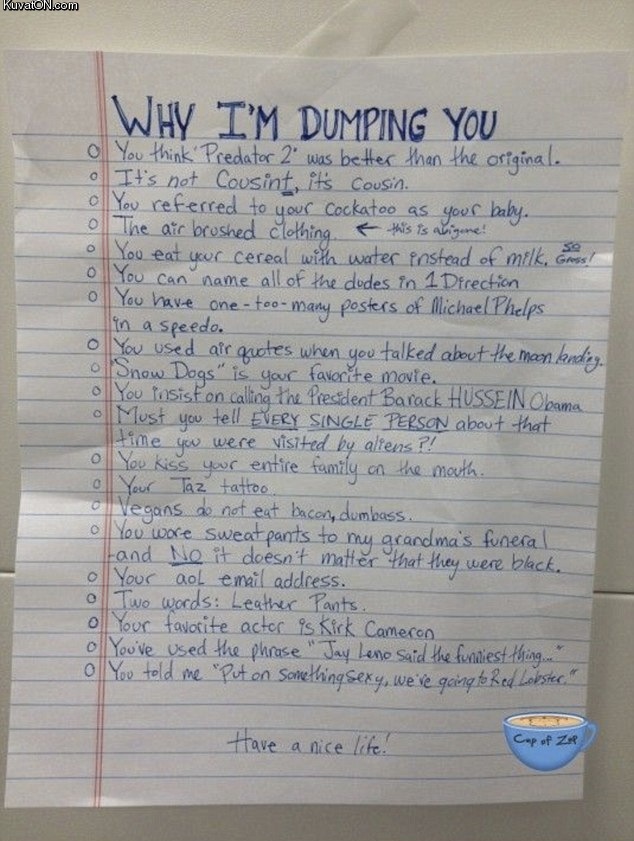 KuvatON.com
WHY I'M DUMPING YOU
You think 'Predator 2' was better than the original.
It's not Cousint, it's cousin.
You referred to your cockatoo as your baby.
The air brushed clothing. ← this is a bigone!
You eat your cereal with water instead of milk. SO Gross!
You can name all of the dudes in 1 Direction
You have one-too-many posters of Michael Phelps
in a speedo.
You used air quotes when you talked about the moon landing.
"Snow Dogs" is your favorite movie.
You insist on calling the President Barack HUSSEIN Obama
Must you tell EVERY SINGLE PERSON about that
time you were visited by aliens?!
You kiss your entire family on the mouth.
Your Taz tattoo.
Vegans do not eat bacon, dumbass.
You wore sweatpants to my grandma's funeral
and NO it doesn't matter that they were black.
Your aol email address.
Two words: Leather Pants.
Your favorite actor is Kirk Cameron
You've used the phrase "Jay Leno said the funniest thing..."
You told me "Put on something sexy, we're going to Red Lobster."
Have a nice life!
Cup of Zup